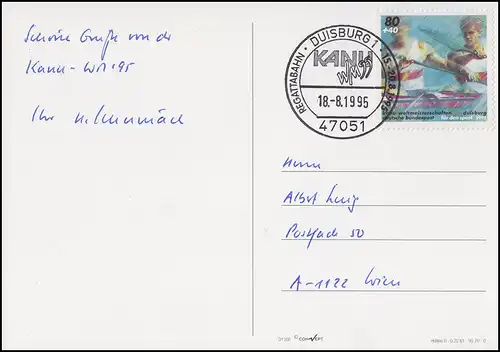 Schöne Grüße von der
Kanu-WM '95
Ihr
DUISBURG 1 · 15.-20.8.1995
REGATTABAHN
KANU
WM 95
18.-8.1995
47051
80
+40
kanu-weltmeisterschaften duisburg
deutsche bundespost für den sport 1995
Herrn
Albert
Postfach 50
A-1122 Wien